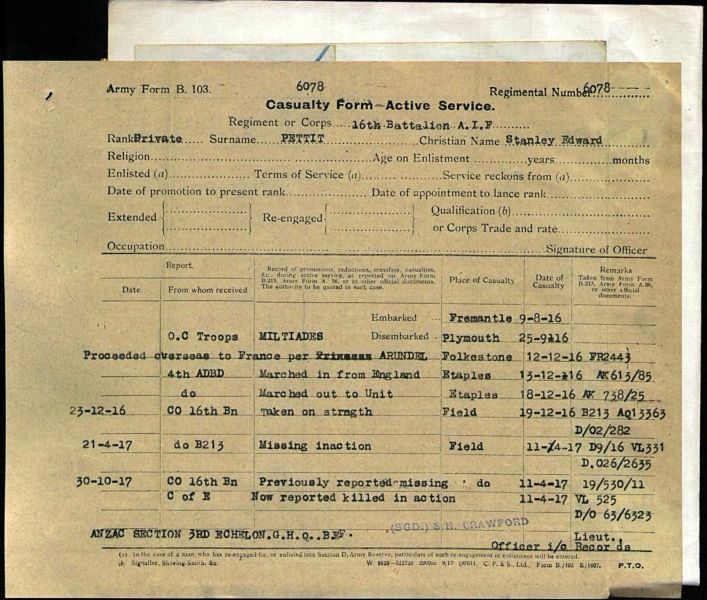 Army Form B. 103.
6078
Regimental Number 6078
Casualty Form—Active Service.
Regiment or Corps 16th Battalion A.I.F
Rank Private Surname PETTIT Christian Name Stanley Edward
Religion Age on Enlistment years months
Enlisted (a) Terms of Service (a) Service reckons from (a)
Date of promotion to present rank Date of appointment to lance rank
Extended Re-engaged Qualification (b)
or Corps Trade and rate
Occupation Signature of Officer
Report.
Date From whom received
Record of promotions, reductions, transfers, casualties, &c., during active service, as reported on Army Form B.213, Army Form A. 36, or in other official documents. The authority to be quoted in each case.
Place of Casualty
Date of Casualty
Remarks
Taken from Army Form B.213, Army Form A.36, or other official documents.
Embarked Fremantle 9-8-16
O.C Troops MILTIADES Disembarked Plymouth 25-9116
Proceeded overseas to France per Princess ARUNDEL Folkestone 12-12-16 FR2443
4th ADBD Marched in from England Etaples 13-12-16 AK613/85
do Marched out to Unit Etaples 18-12-16 AK 738/25
23-12-16 CO 16th Bn Taken on strngth Field 19-12-16 B213 AQ13363
D/02/282
21-4-17 do B213 Missing inaction Field 11-4-17 D9/16 VL331
D.026/2635
30-10-17 CO 16th Bn Previously reported missing do 11-4-17 19/530/11
C of E Now reported killed in action 11-4-17 VL 525
D/O 63/6323
ANZAC SECTION 3RD ECHELON.G.H.Q..BEF.
(SGD.) S.H. CRAWFORD
Lieut.
Officer i/c Records
(a) In the case of a man who has re-engaged for, or enlisted into Section D, Army Reserve, particulars of such re-engagement or enlistment will be entered.
(b) Signaller, Shoeing-Smith, &c.
C. P. & S., Ltd., Form B./103
P.T.O.